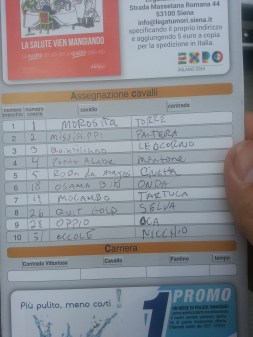 LA SALUTE VIEN MANGIANDO
Strada Massetana Romana 44
53100 Siena
info@legatumori.siena.it
specificando il proprio indirizzo
e aggiungendo 5 euro a copia
per la spedizione in Italia.
EXPO
MILANO 2015
Assegnazione cavalli
numero prescelto numero coscia cavallo contrada
1 MOROSITA TORRE
2 2 MISSISSIPPI PANTERA
3 3 LEOCORNO
4 4 Porto Alabe Montone
5 5 Civetta
6 18 OSAMA BIN ONDA
7 19 MOCAMBO TARTUCA
8 26 QUIT GOLD SELVA
9 28 OPPIO OCA
10 31 OCCOLE NICCHIO
Carriera
Contrada Vittoriosa Cavallo Fantino tempo
Più pulito, meno costi !
1 PROMO